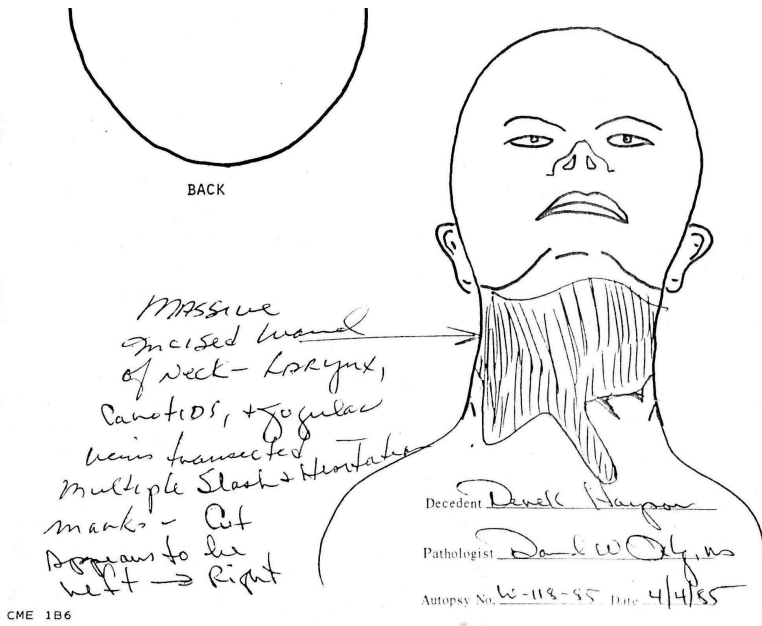 BACK
Massive
incised wound
of Neck - Larynx,
Carotids, + Jugular
veins transected
Multiple Slash + Hesitation
marks - Cut
Appears to be
Left → Right
Decedent Derek
Pathologist
Autopsy No. W-118-85 Date 4/4/85
CME 1B6